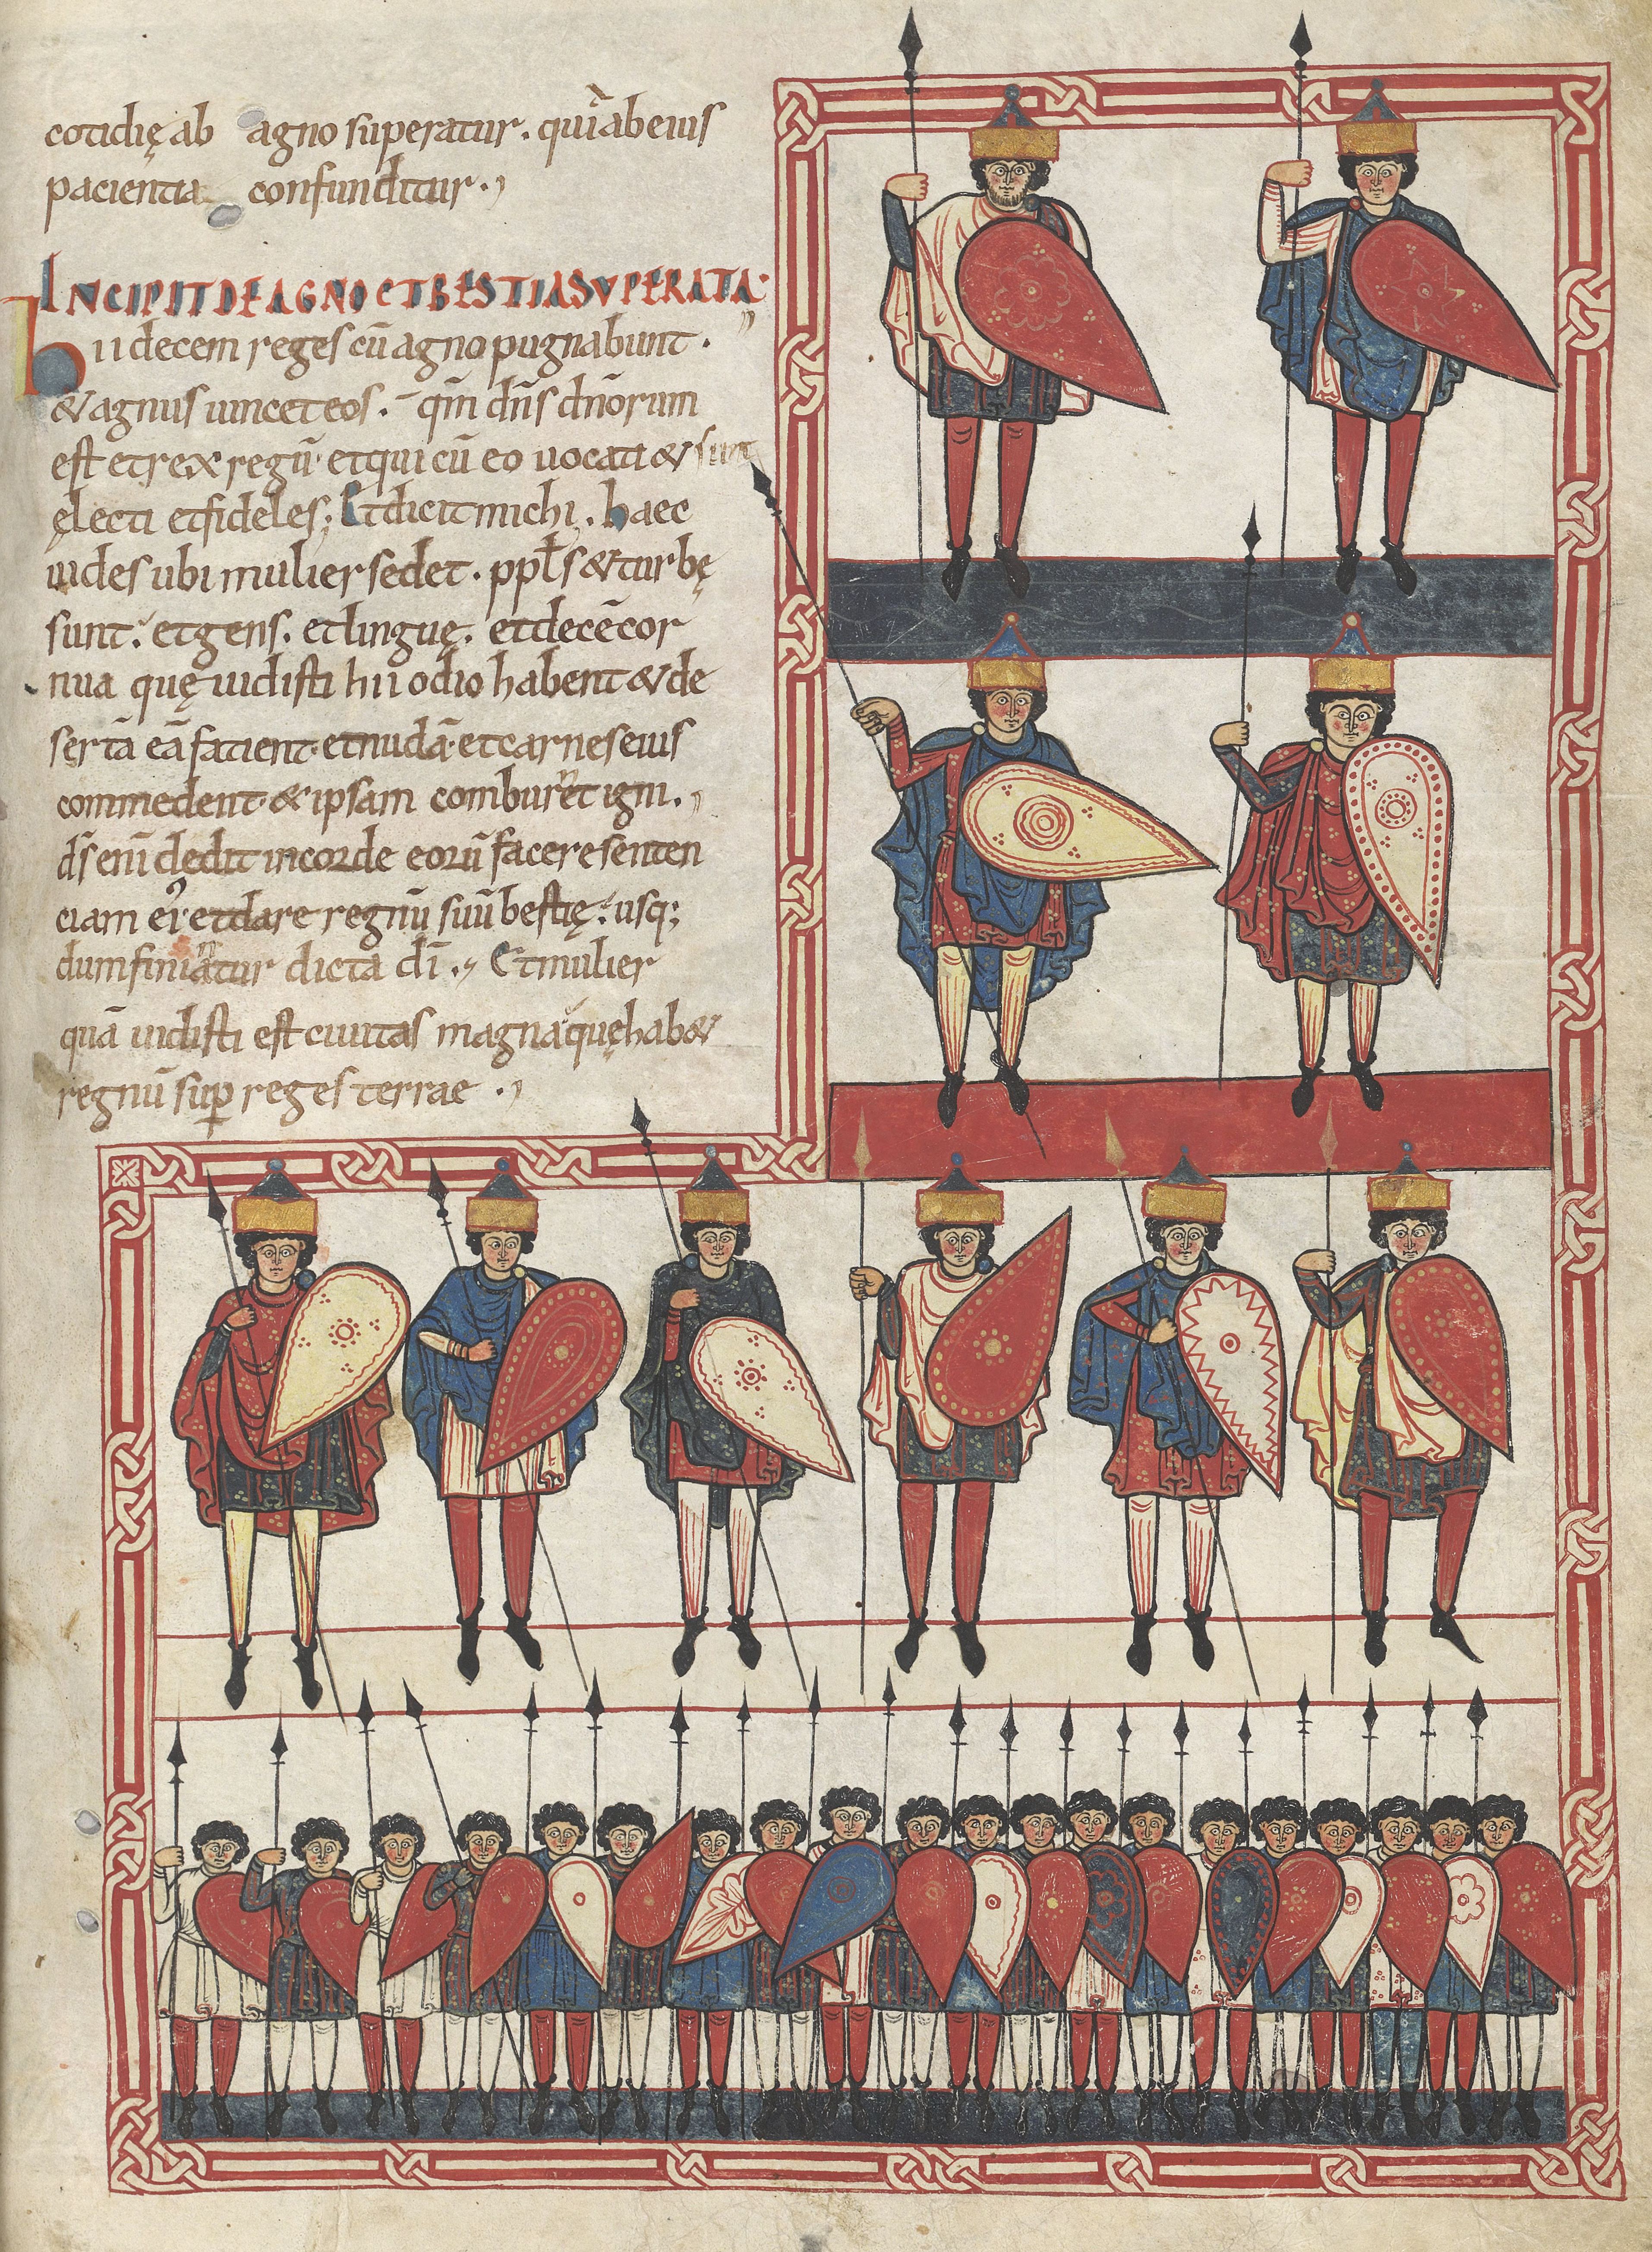 cotidię ab agno superatur. quia ab eius
pacientia confunditur.
INCIPIT DE AGNO ET BESTIA SUPERATA
hii decem reges cū agno pugnabunt.
& agnus uincet eos. qm̄ dn̄s dn̄orum
est et rex regū. et qui cū eo uocati & sunt
ęlecti et fideles; Et dicit michi. haec
uides ubi mulier sedet. ppl̄s & turbę
sunt. et gens. et linguę. et decē cor
nua quę uidisti hii odio habent & de
sertā eā facient et nudā et carnes eius
commedent & ipsam comburent igni.
ds̄ enī dedit in corde eorū facere senten
ciam ei᾽ et dare regnū suū bestię. usq;
dum finiantur dicta dī. Et mulier
quā uidisti est ciuitas magna quę hab&
regnū sup reges terrae.